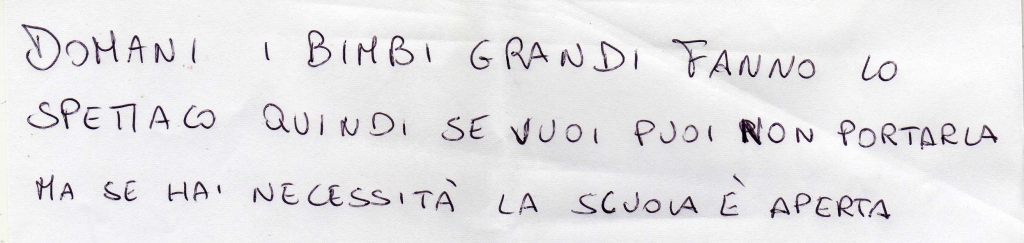 DOMANI I BIMBI GRANDI FANNO LO
SPETTACO QUINDI SE VUOI PUOI NON PORTARLA
MA SE HAI NECESSITÀ LA SCUOLA È APERTA